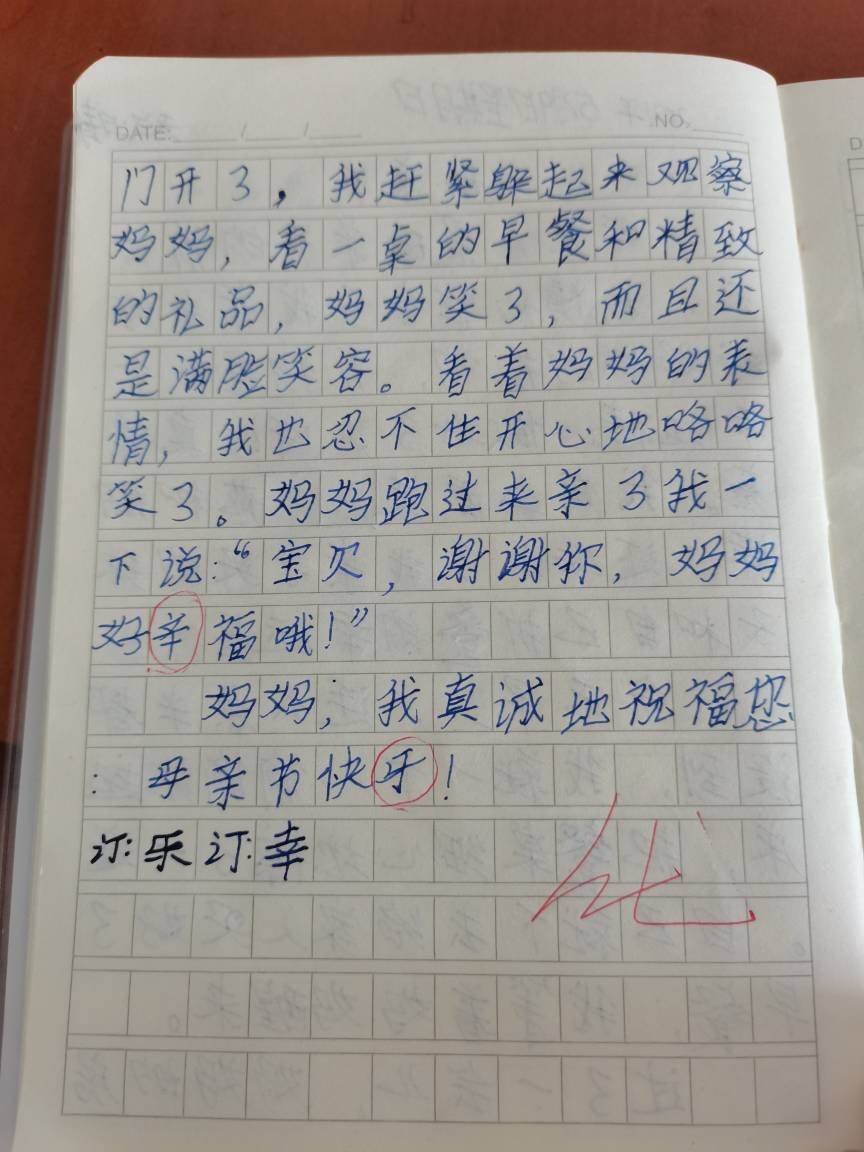 DATE: / / NO.
门开了，我赶紧躲起来观察
妈妈，看一桌的早餐和精致
的礼品，妈妈笑了，而且还
是满脸笑容。看着妈妈的表
情，我也忍不住开心地咯咯
笑了。妈妈跑过来亲了我一
下说：“宝贝，谢谢你，妈妈
好辛福哦！”
妈妈，我真诚地祝福您
：母亲节快牙！
订：乐订：幸